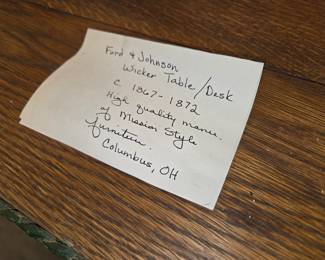 Ford & Johnson
Wicker Table/Desk
c. 1867-1872
High quality manu.
of Mission Style
furniture.
Columbus, OH